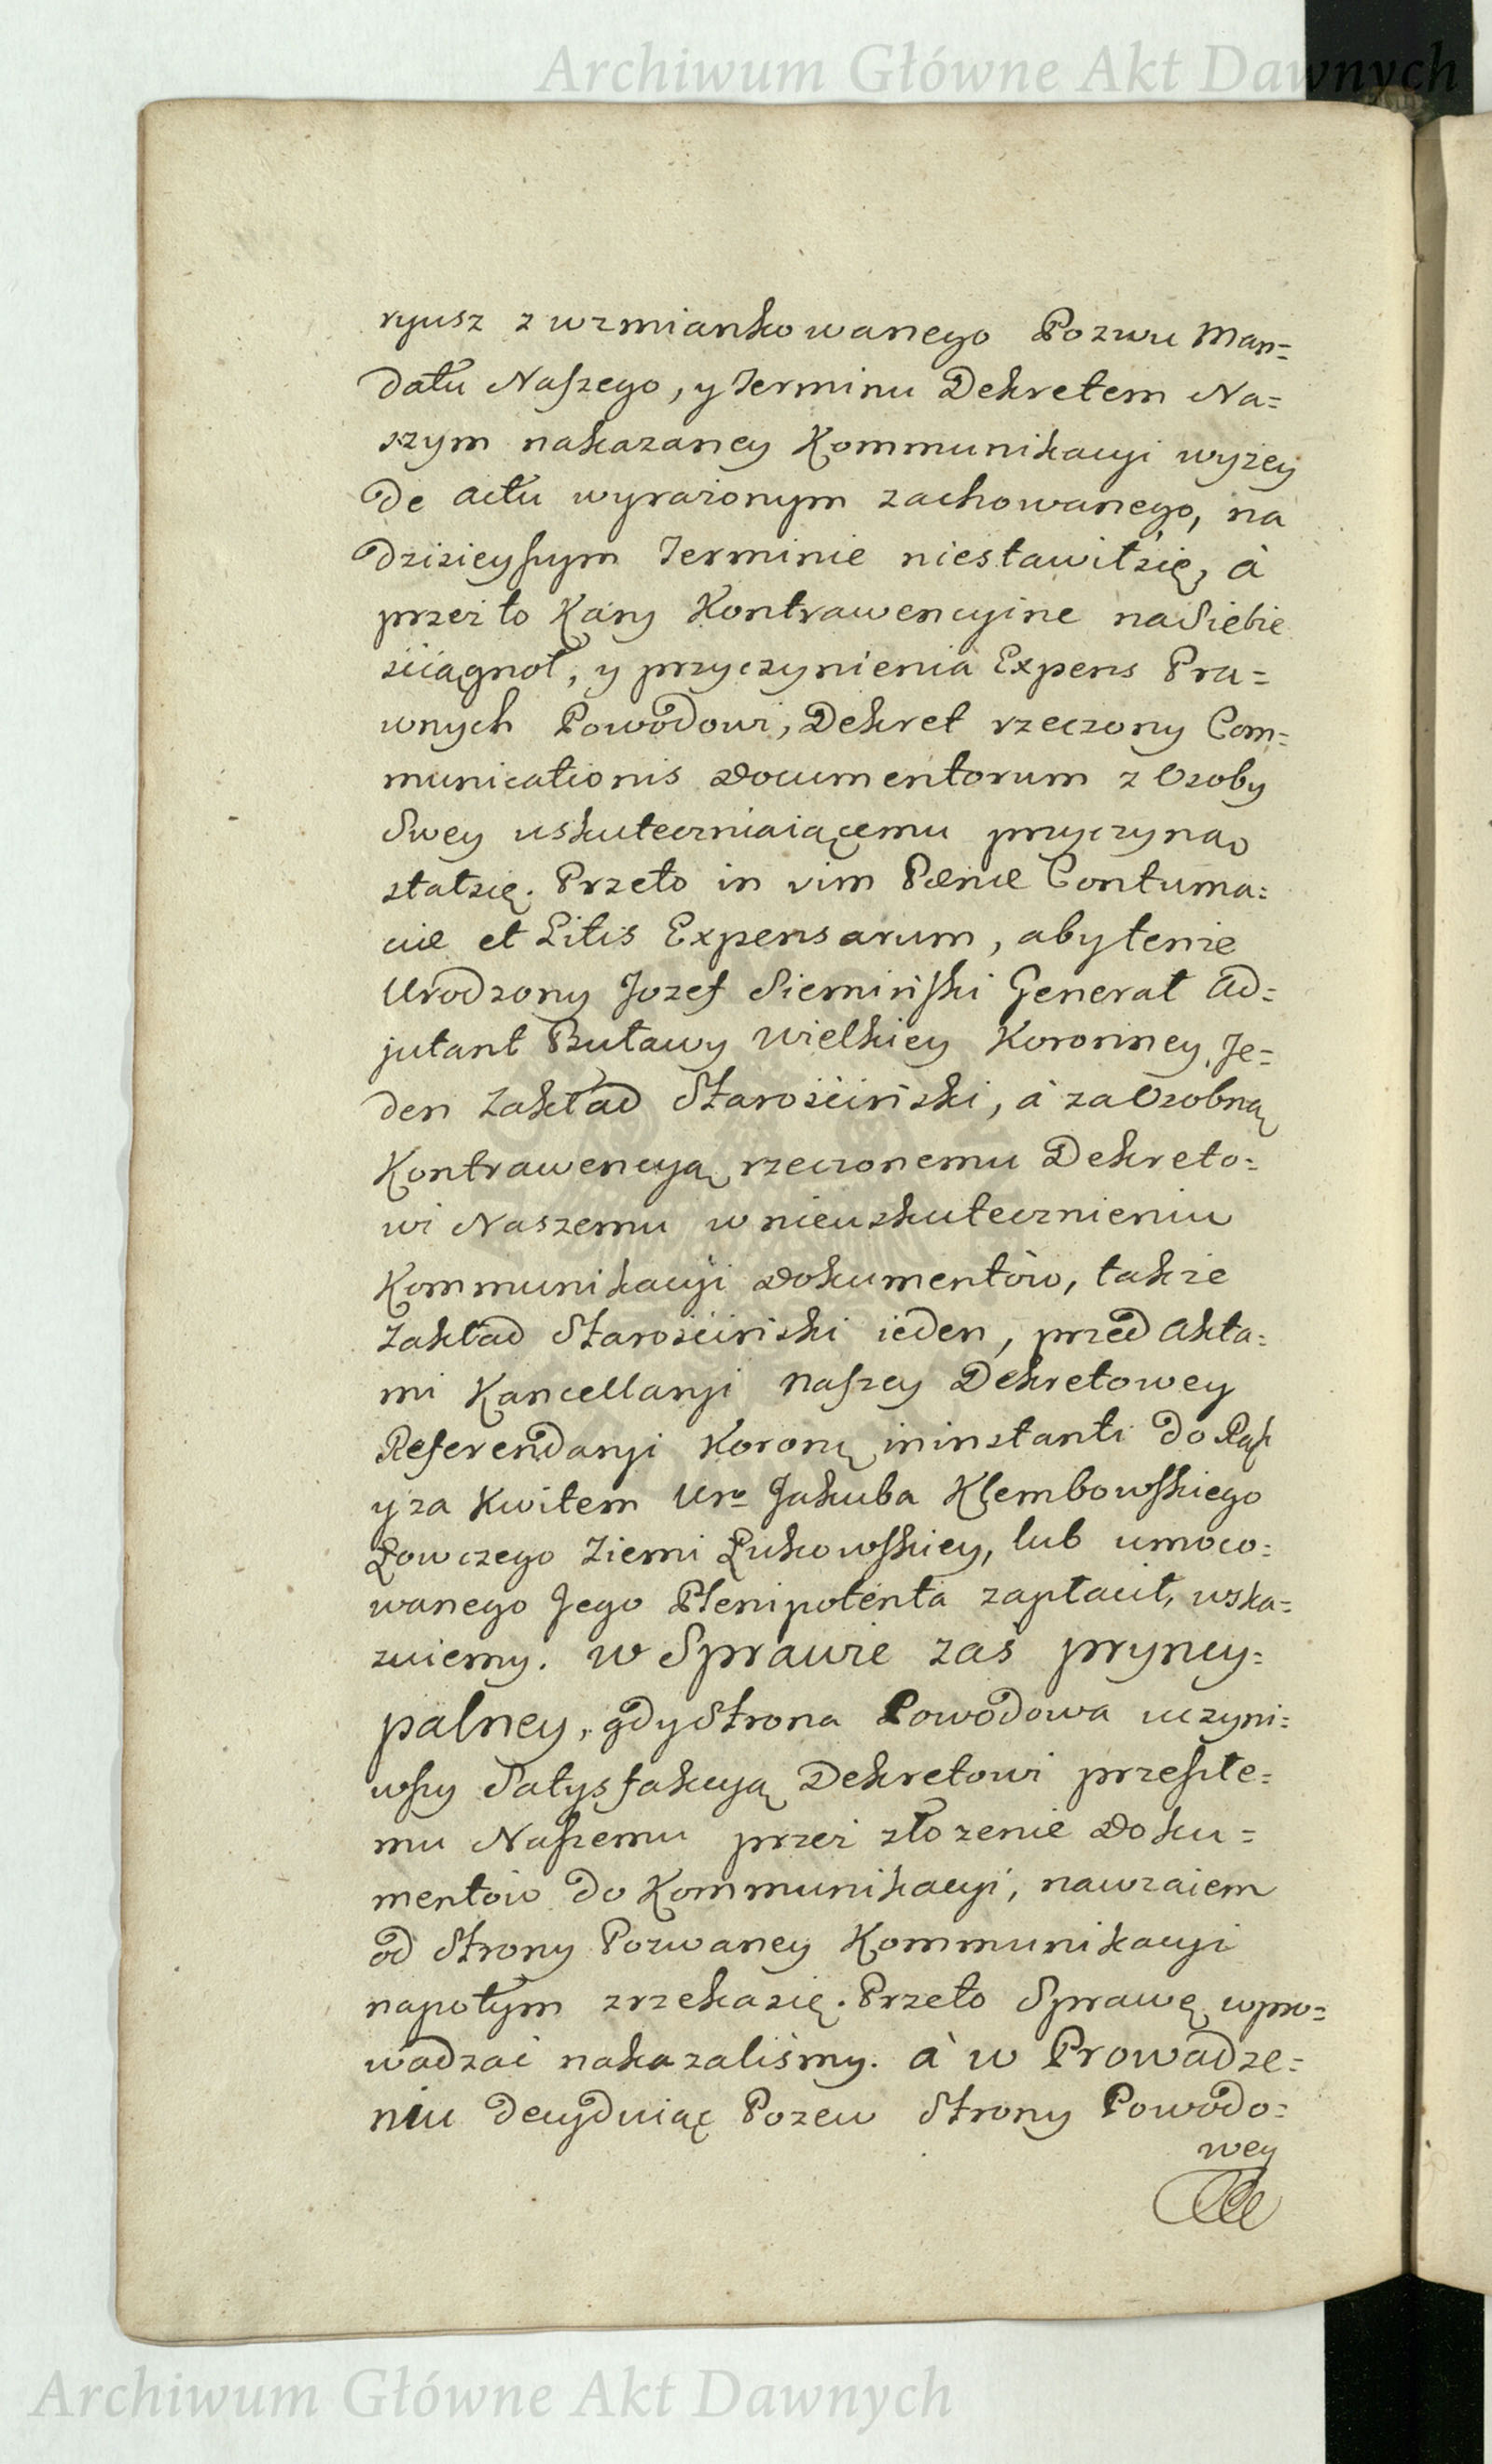 Archiwum Główne Akt Dawnych
ryusz z wzmiankowanego Pozwu Man=
datu Naszego, y Terminu Dekretem Na=
szym nakazaney Kommunikacyi wyzey
de actu wyrazonym zachowanego, na
dzisieyszym Terminie niestawiłsię, à
przez to Kary Kontrawencyine na Siebie
sciągnoł, y przyczynienia Expens Pra=
wnych Powodowi, Dekret rzeczony Com=
municationis Documentorum z Osoby
Swey uskuteczniaiącemu przyczyną
stałsię. Przeto in vim Pœnæ Contuma=
ciæ et Litis Expensarum, abytenże
Urodzony Jozef Siemiński Generał Ad=
jutant Buławy Wielkiey Koronney, Je=
den Zakład Starościński, à za Osobną
Kontrawencyą rzeczonemu Dekreto=
wi Naszemu w nieuskutecznieniu
Kommunikacyi Dokumentów, także
Zakład Starościński ieden, przed Akta=
mi Kancellaryi naszey Dekretowey
Referendaryi Koronņ ininstanti do Rąk
y za Kwitem Uro Jakuba Klembowskiego
Łowczego Ziemi Łukowskiey, lub umoco=
wanego Jego Plenipotenta zapłacił, wska=
zuiemy. w Sprawie zas pryncy=
palney, gdy Strona Powodowa uczyni=
wszy Satysfakcyą Dekretowi przeszłe=
mu Naszemu przez złożenie Doku=
mentów do Kommunikacyi, nawzaiem
od Strony Pozwaney Kommunikacyi
napotym zrzekasię. Przeto Sprawę wpro=
wadzać nakazaliśmy. à w Prowadze=
niu decyduiąc Pozew Strony Powodo=
wey
Archiwum Główne Akt Dawnych